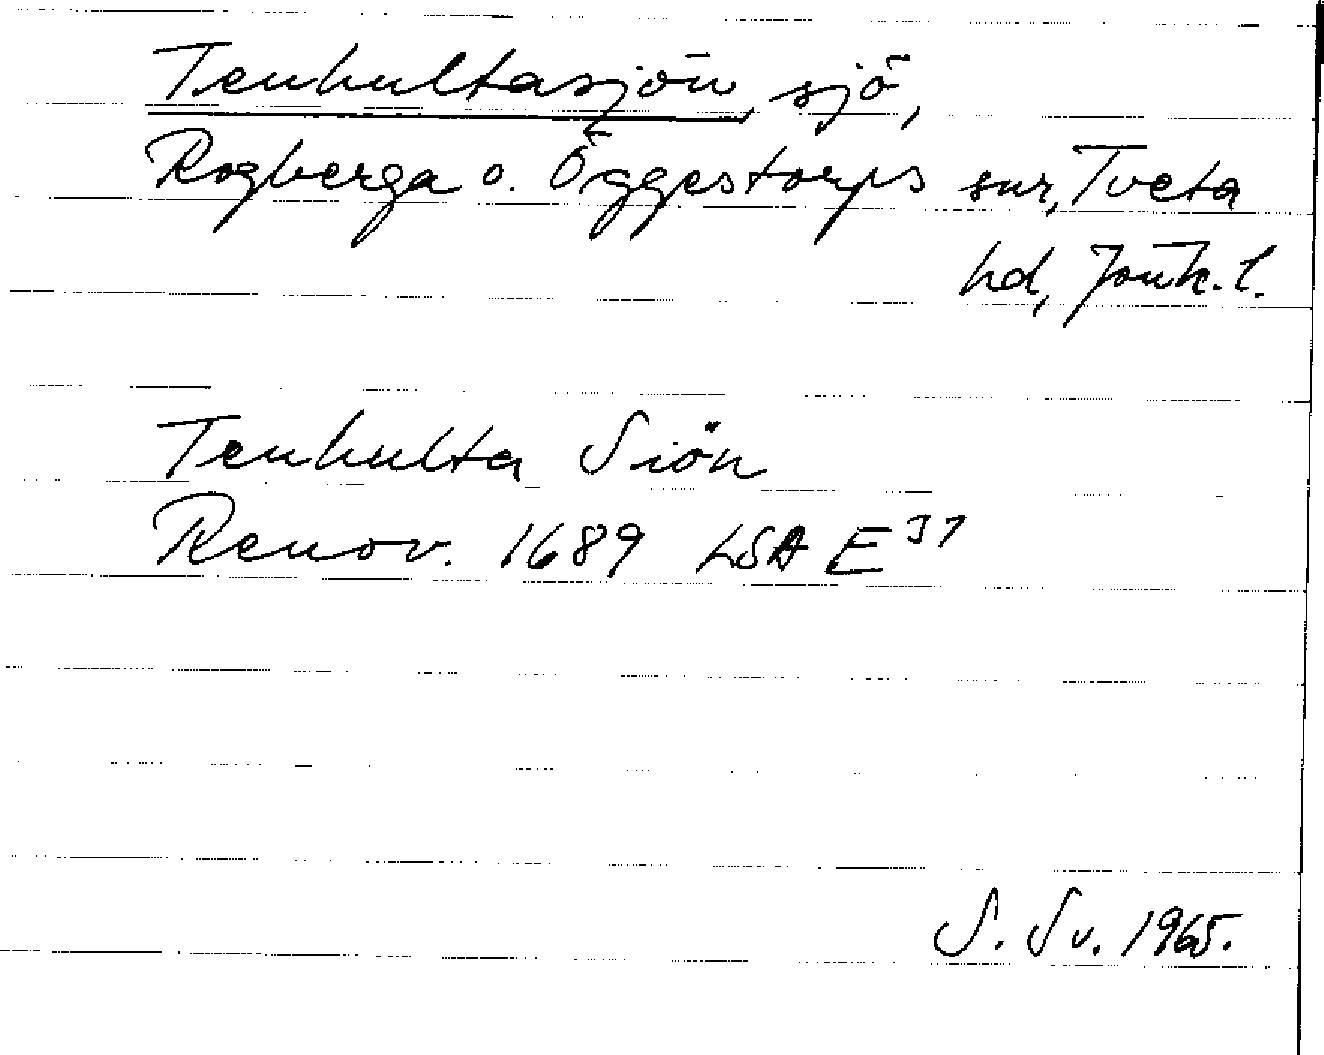 Tenhultasjön, sjö,
Rogberga o. Öggestorps snr, Tveta
hd, Jönk. l.
Tenhulta Siön
Renov. 1689 LSA E 37
S. Sv. 1965.